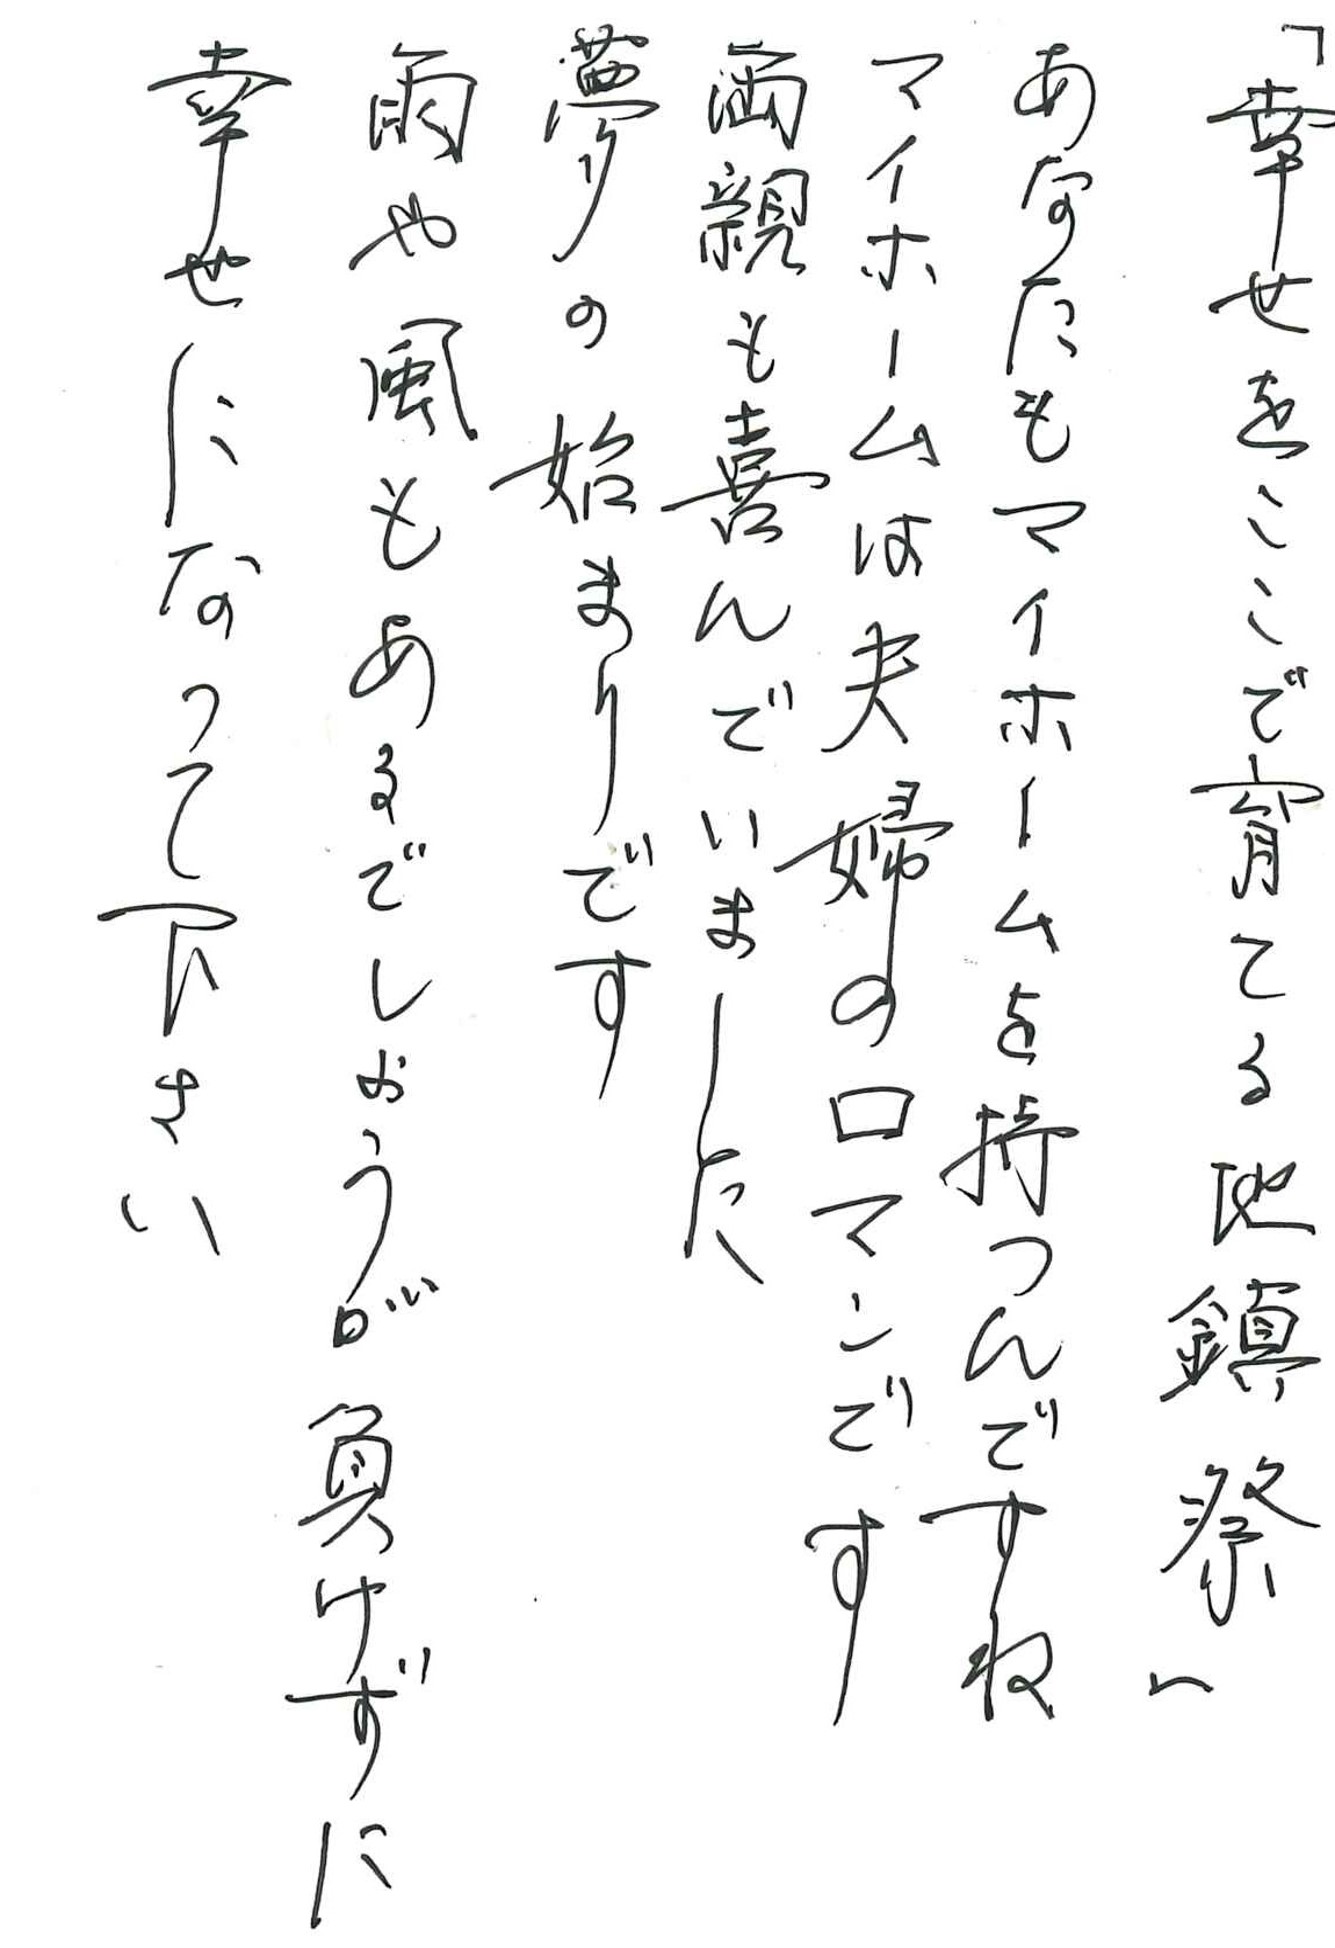 「幸せをここで育てる地鎮祭」
あなたもマイホームを持つんですね
マイホームは夫婦のロマンです
両親も喜んでいました
夢の始まりです
雨や風もあるでしょうが負けずに
幸せになって下さい